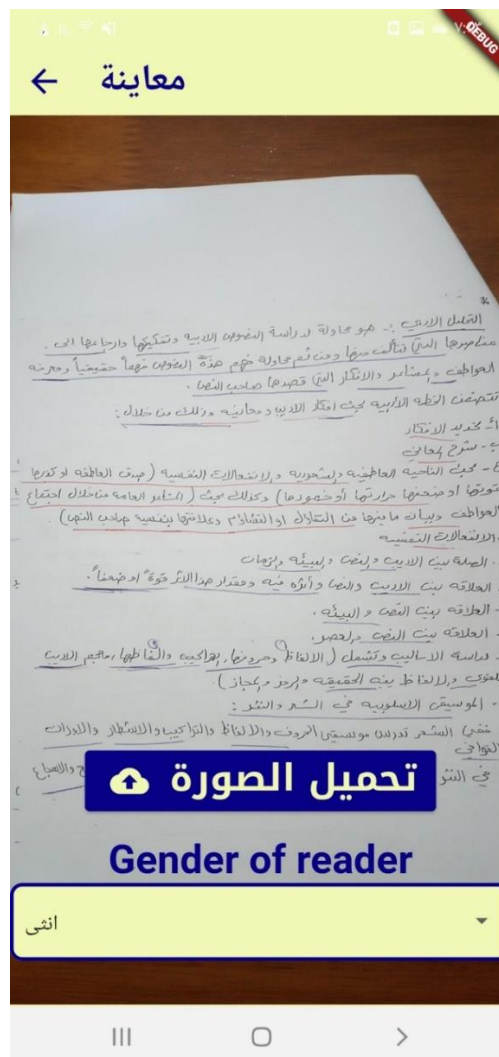 ٧:
DEBUG
معاينة
التحليل الادبي :- هو محاولة لدراسة النصوص الادبيه وتفكيكها وارجاعها الى
عناصرها التي تتألف منها ومن ثم محاولة فهم هذة النصوص فهماً حقيقياً ومعرفه
العواطف والمشاعر والافكار التي قصدها صاحب النص .
تتضمن الخطه الأدبيه بحث افكار الاديب ومعانيه وذلك من خلال :
أ- تحديد الافكار
ب - شرح المعاني
بحث الناحيه العاطفيه والشعوريه والانفعالات النفسيه ( صدق العاطفه او كذبها
قوتها او ضعفها حرارتها أو خمودها ) وكذلك بحث ( المشاعر العامه من خلال اجتماع
العواطف وبيان ما فيها من التفاؤل او التشاؤم وعلاقتها بنفسية صاحب النص ) .
الانفعالات النفسيه
- الصلة بين الاديب والنص والبيئه والزمان
العلاقه بين الاديب والنص وأثره فيه ومقدار هذا الاثر قوةً او ضعفاً .
- العلاقه بين النص والبيئه .
- العلاقه بين النص والعصر .
- دراسة الاساليب وتشمل ( الالفاظ وحروفها ، التراكيب والفاظها ، معجم الاديب
اللغوي والالفاظ بين الحقيقه والرمز والمجاز )
- الموسيقى الاسلوبيه في الشعر والنثر :
ففي الشعر تدرس موسيقى الحروف والالفاظ والتراكيب والاشطار والاوزان
القوافي
في النثر والاسجاع
تحميل الصورة
Gender of reader
انثى